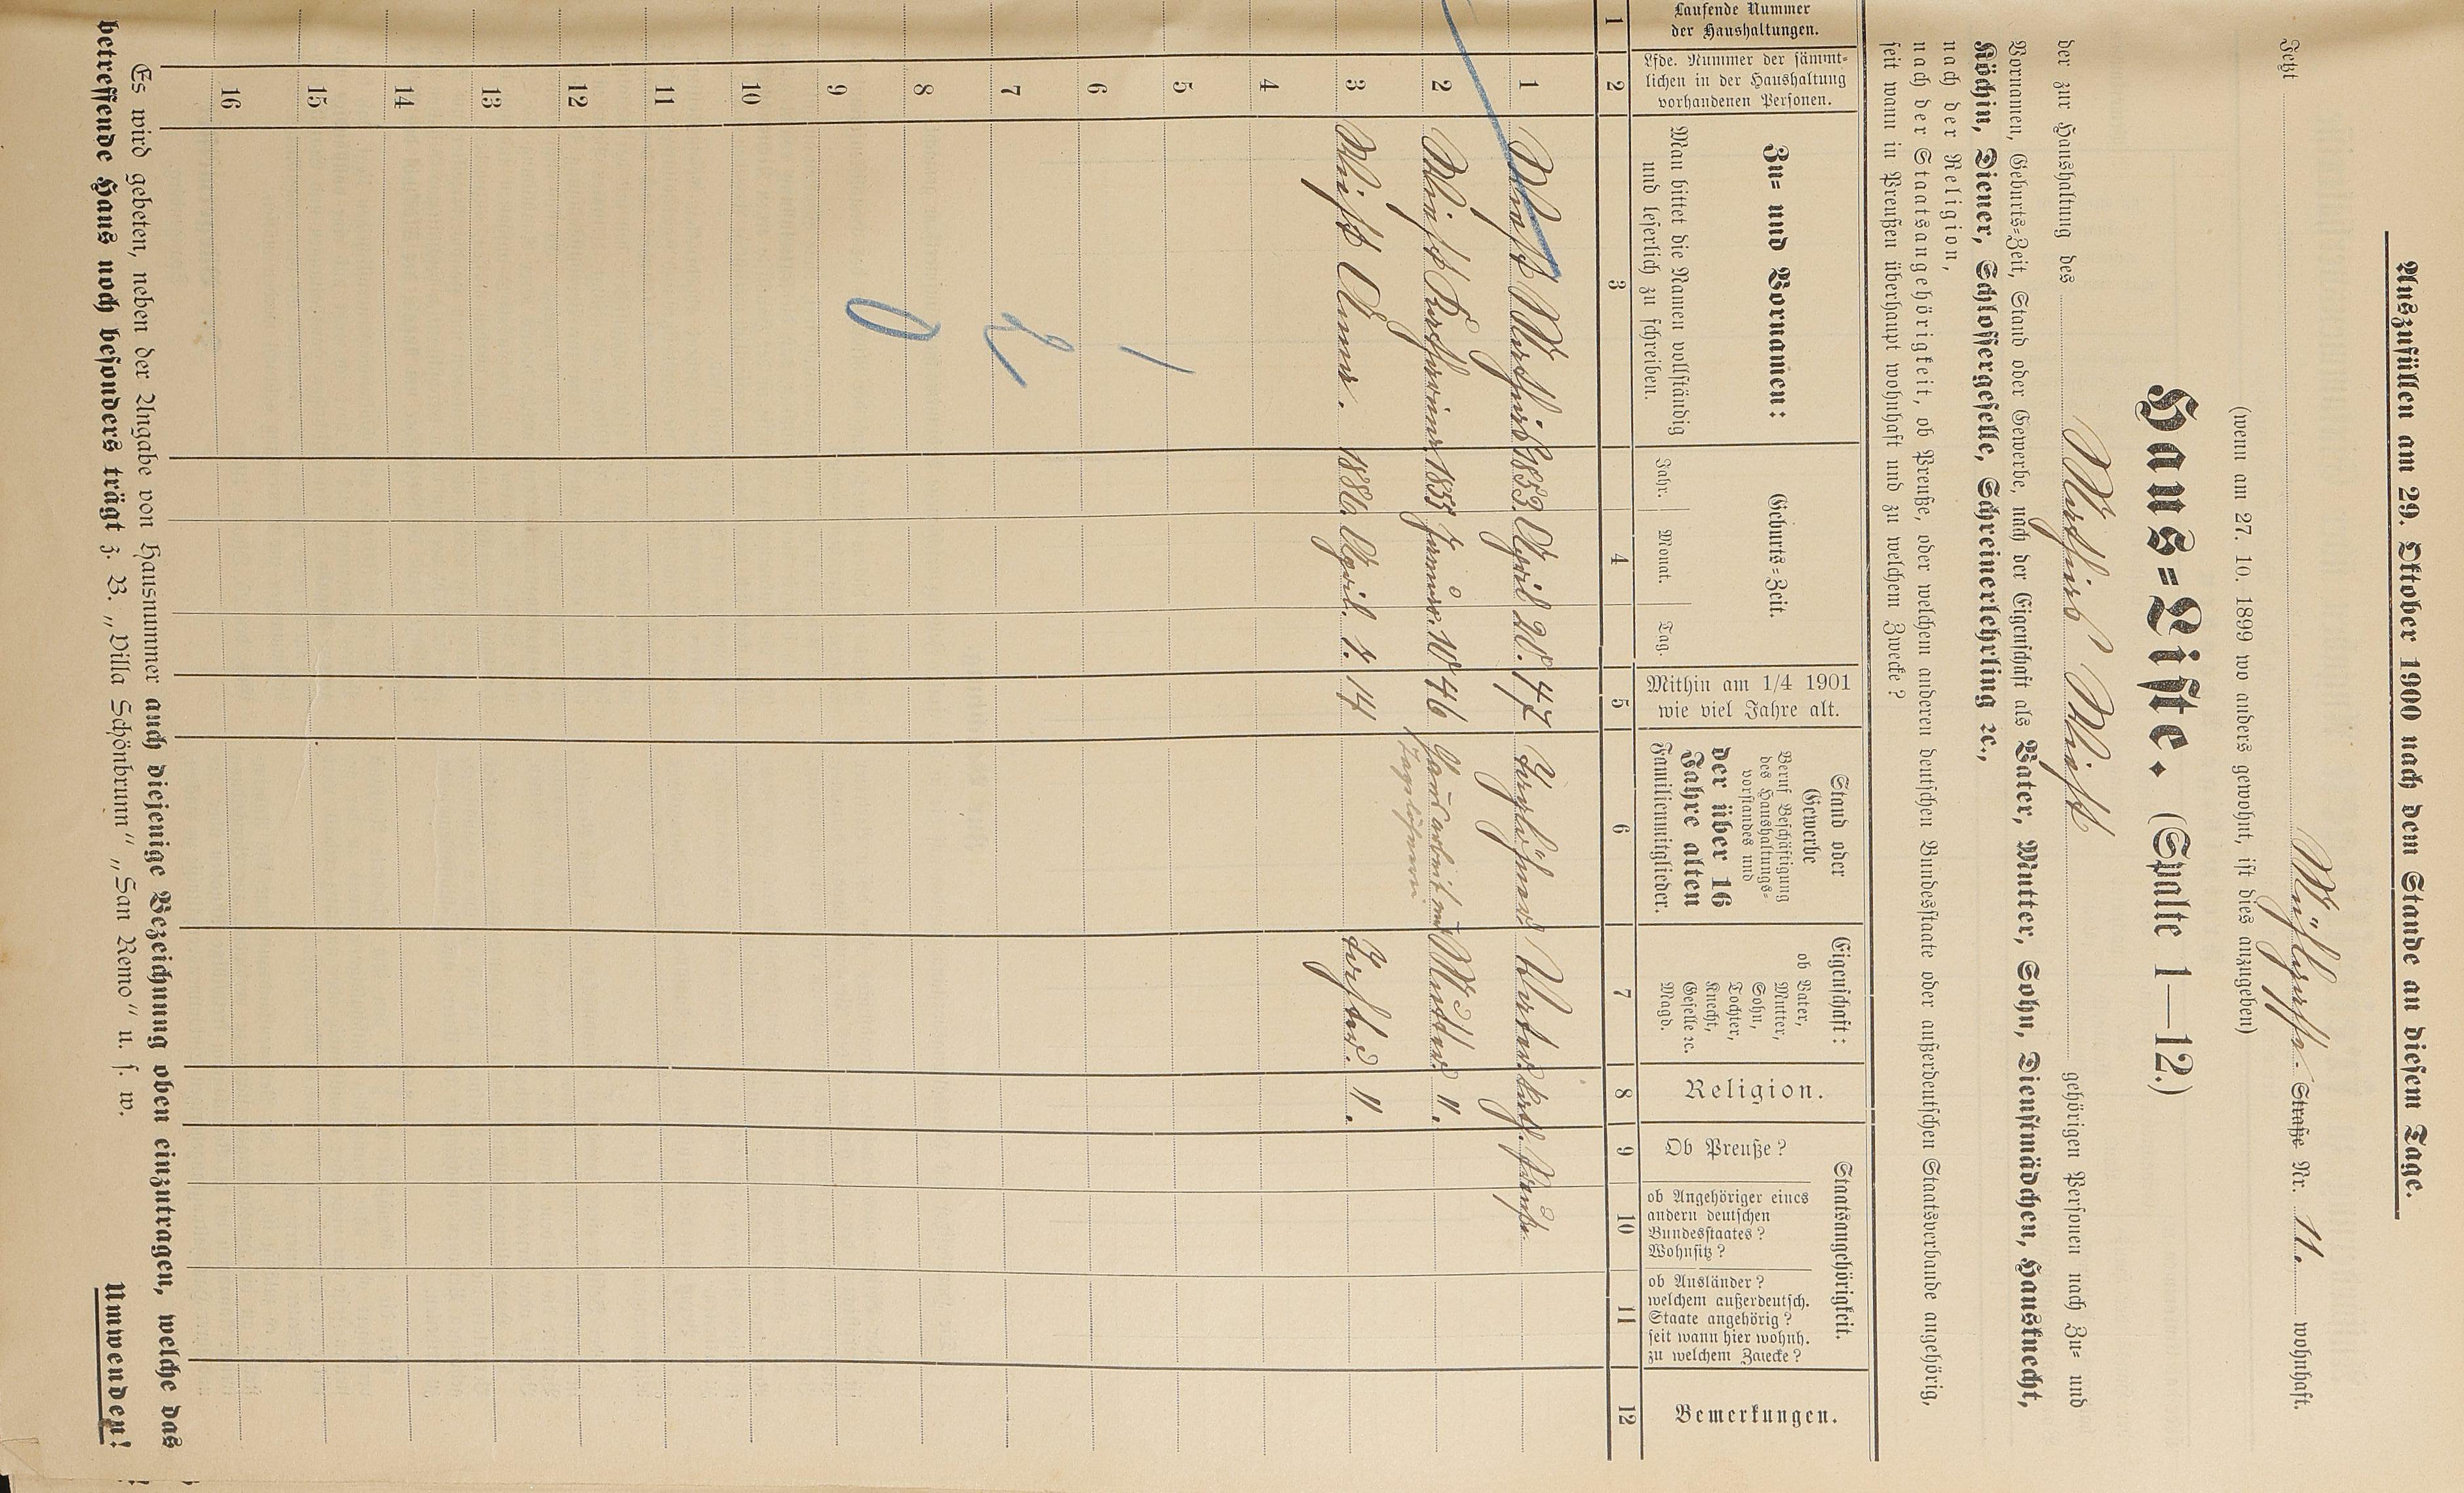 Auszufüllen am 29. Oktober 1900 nach dem Stande an diesem Tage.
Jetzt Mühlgasse - Straße Nr. 11. wohnhaft.
(wenn am 27. 10. 1899 wo anders gewohnt, ist dies anzugeben)
Haus=Liste. (Spalte 1—12.)
der zur Haushaltung des Mathias gehörigen Personen nach Zu= und
Vornamen, Geburts=Zeit, Stand oder Gewerbe, nach der Eigenschaft als Vater, Mutter, Sohn, Dienstmädchen, Hausknecht,
Köchin, Diener, Schlossergeselle, Schreinerlehrling ꝛc.,
nach der Religion,
nach der Staatsangehörigkeit, ob Preuße, oder welchem anderen deutschen Bundesstaate oder außerdeutschen Staatsverbande angehörig,
seit wann in Preußen überhaupt wohnhaft und zu welchem Zwecke?
Laufende Nummer
der Haushaltungen.
Lfde. Nummer der sämmt=
lichen in der Haushaltung
vorhandenen Personen.
Zu= und Vornamen:
Man bittet die Namen vollständig
und leserlich zu schreiben.
Geburts=Zeit.
Jahr.
Monat.
Tag.
Mithin am 1/4 1901
wie viel Jahre alt.
Stand oder
Gewerbe
Beruf Beschäftigung
des Haushaltungs=
vorstandes und
der über 16
Jahre alten
Familienmitglieder.
Eigenschaft:
ob Vater,
Mutter,
Sohn,
Tochter,
Knecht,
Geselle ꝛc.
Magd.
Religion.
Staatsangehörigkeit.
Ob Preuße?
ob Angehöriger eines
andern deutschen
Bundesstaates?
Wohnsitz?
ob Ausländer?
welchem außerdeutsch.
Staate angehörig?
seit wann hier wohnh.
zu welchem Zwecke?
Bemerkungen.
1 2 3 4 5 6 7 8 9 10 11 12
1 Mathias 1853. April 20. 47 Taglöhner. Vater. kath. Preuße.
2 1855 Januar. 10 46 Mutter. ".
Taglöhnerin
3 Anna. 1886. April. 1. 14 Tochter. ".
4
5
6
7
8
9
10
11
12
13
14
15
16
Es wird gebeten, neben der Angabe von Hausnummer auch diejenige Bezeichnung oben einzutragen, welche das
betreffende Haus noch besonders trägt z. B. „Villa Schönbrunn" „San Remo" u. s. w.
Umwenden!